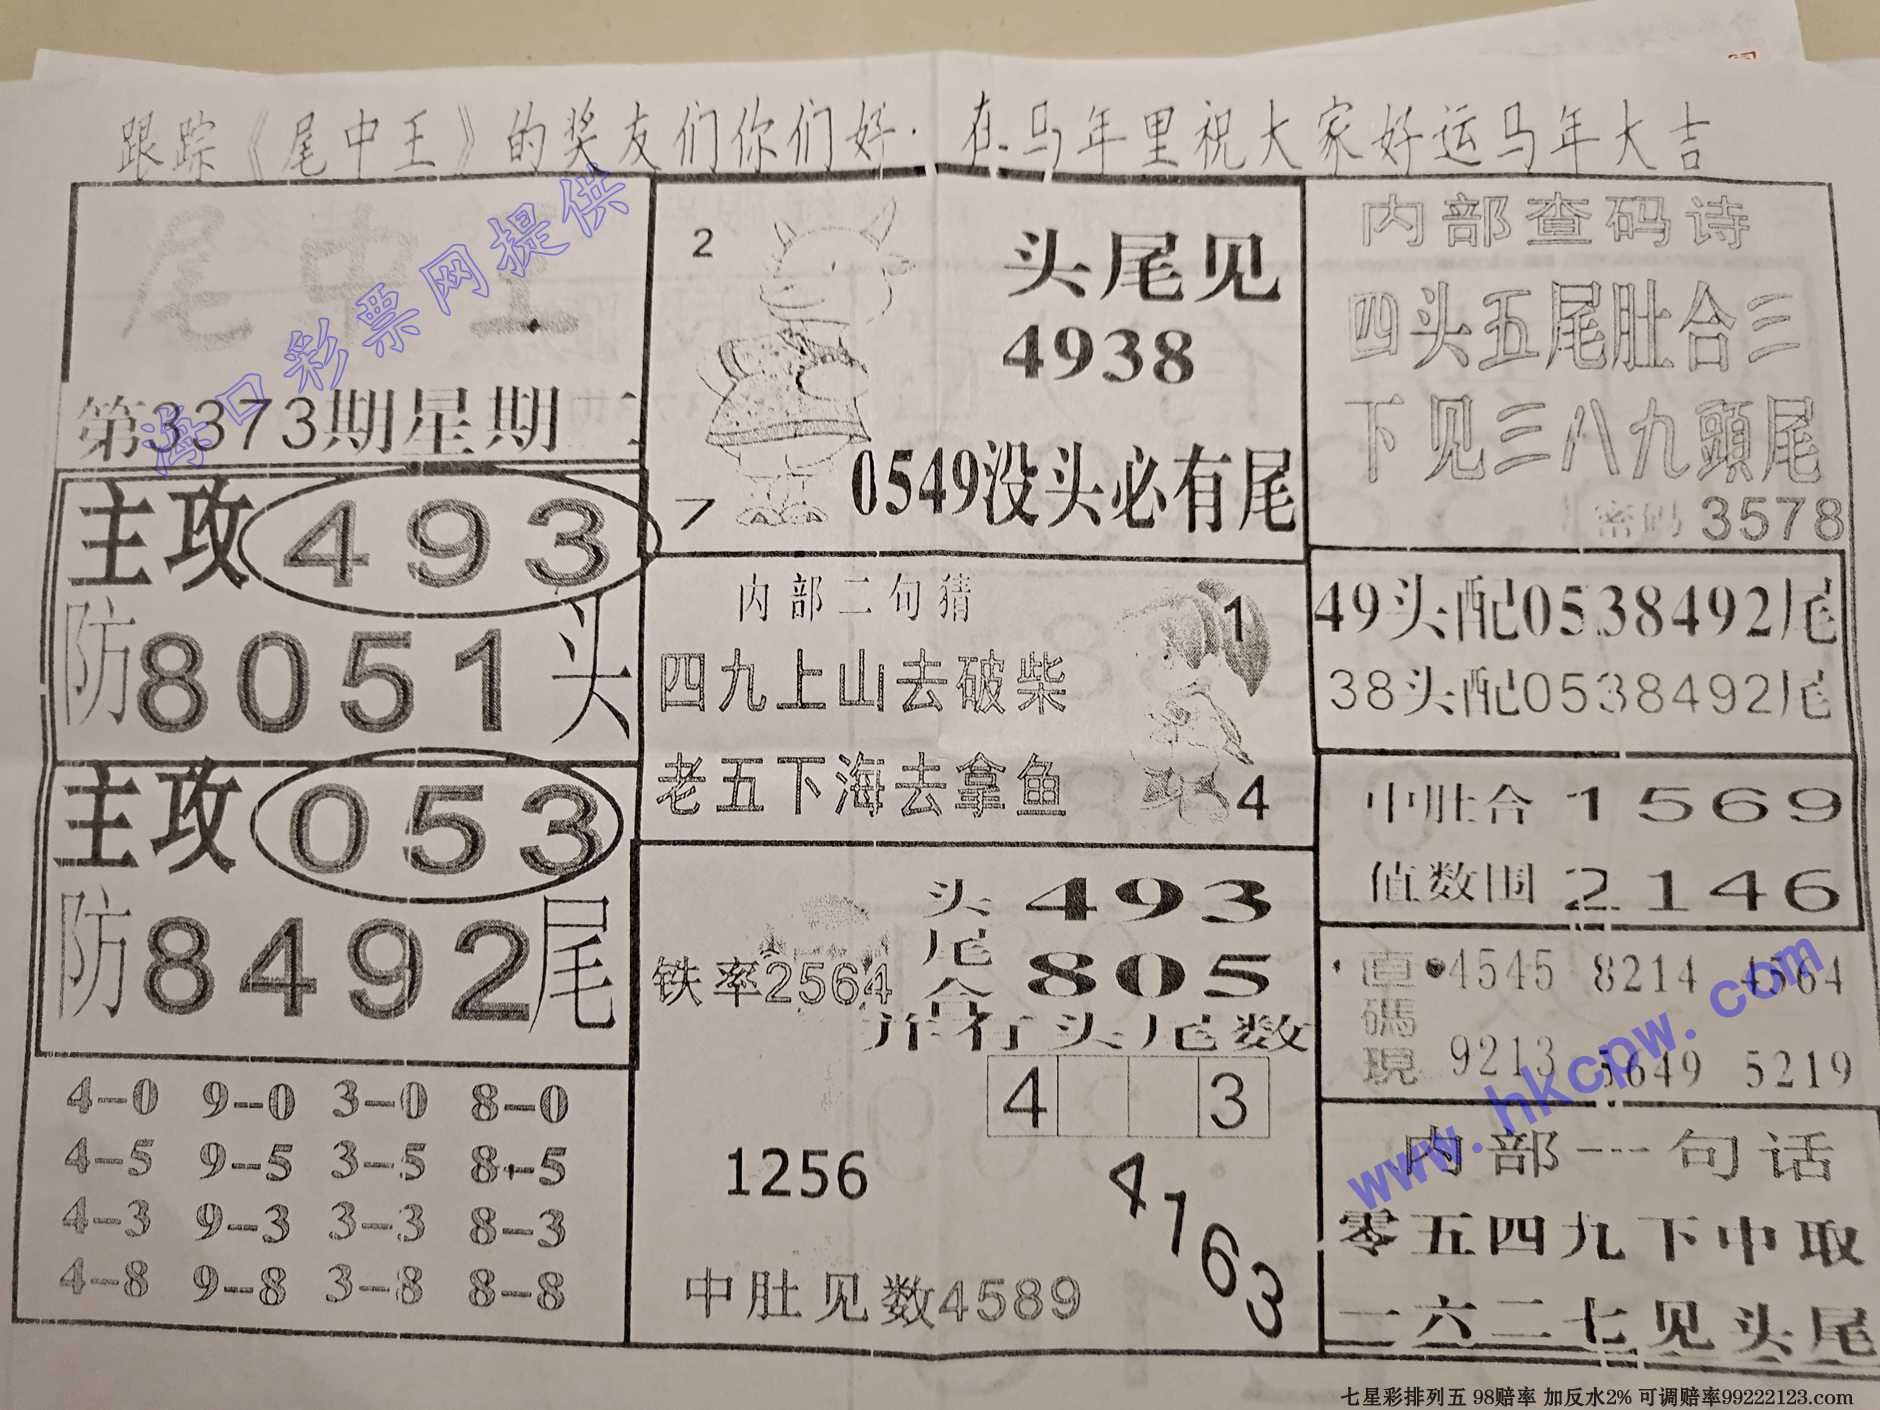 跟踪《尾中王》的奖友们你们好.在马年里祝大家好运马年大吉
尾中王
第3373期星期二
主攻493
防8051头
主攻053
防8492尾
4--0 9--0 3--0 8--0
4--5 9--5 3--5 8--5
4--3 9--3 3--3 8--3
4--8 9--8 3--8 8--8
2
头尾见
4938
7
0549没头必有尾
内部二句猜
四九上山去破柴
老五下海去拿鱼
1
4
头493
尾
合805
铁率2564
并行头尾数
4 3
1256
4163
中肚见数4589
内部查码诗
四头五尾肚合三
下见三八九頭尾
密码 3578
49头配0538492尾
38头配0538492尾
中肚合1569
值数围2146
直碼現
4545 8214 4564
9213 5649 5219
内部一句话
零五四九下中取
一六二七见头尾
海口彩票网提供
www.hkcpw.com
七星彩排列五 98赔率 加反水2% 可调赔率99222123.com